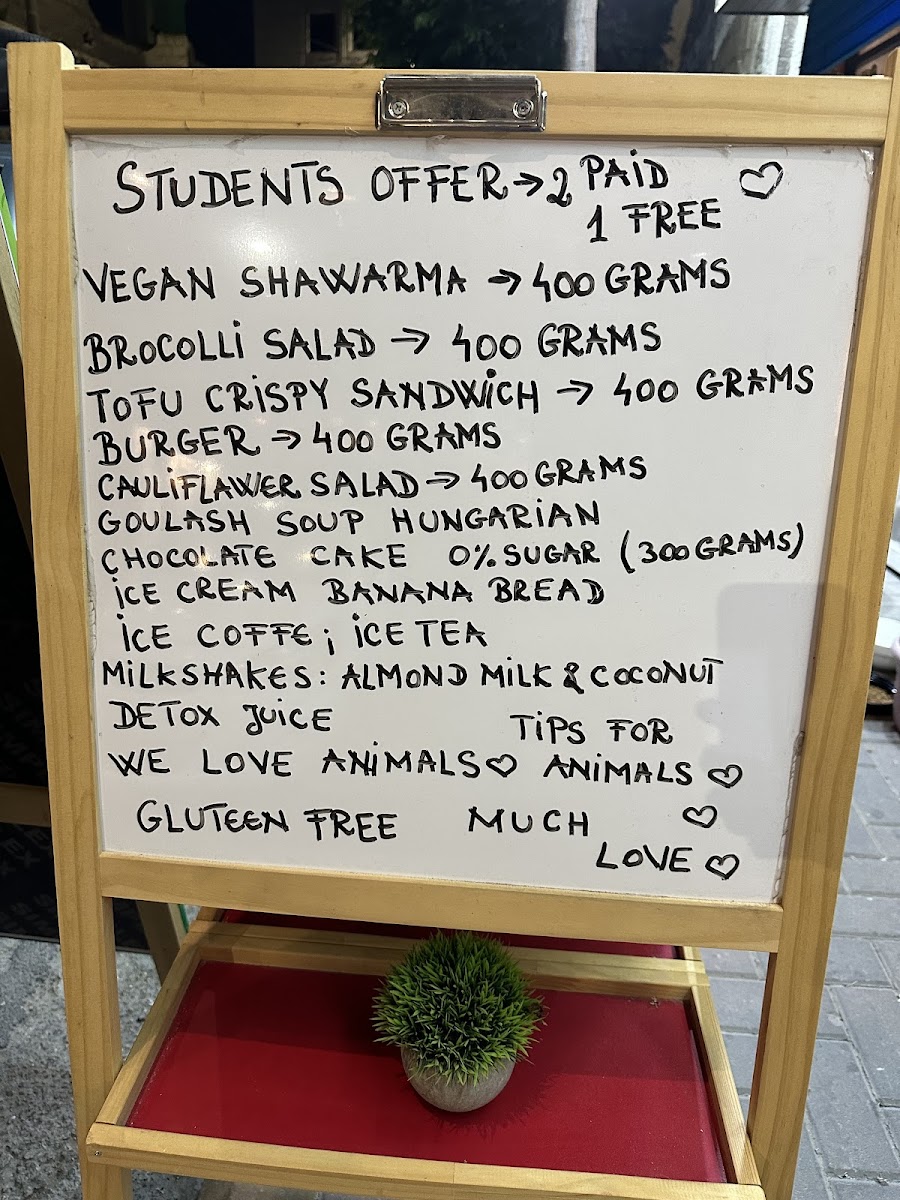 STUDENTS OFFER → 2 PAID ♡
1 FREE
VEGAN SHAWARMA → 400 GRAMS
BROCOLLI SALAD → 400 GRAMS
TOFU CRISPY SANDWICH → 400 GRAMS
BURGER → 400 GRAMS
CAULIFLAWER SALAD → 400 GRAMS
GOULASH SOUP HUNGARIAN
CHOCOLATE CAKE 0% SUGAR (300 GRAMS)
ICE CREAM BANANA BREAD
ICE COFFE ; ICE TEA
MILKSHAKES: ALMOND MILK & COCONUT
DETOX JUICE
TIPS FOR
WE LOVE ANIMALS ♡ ANIMALS ♡
GLUTEEN FREE MUCH ♡
LOVE ♡